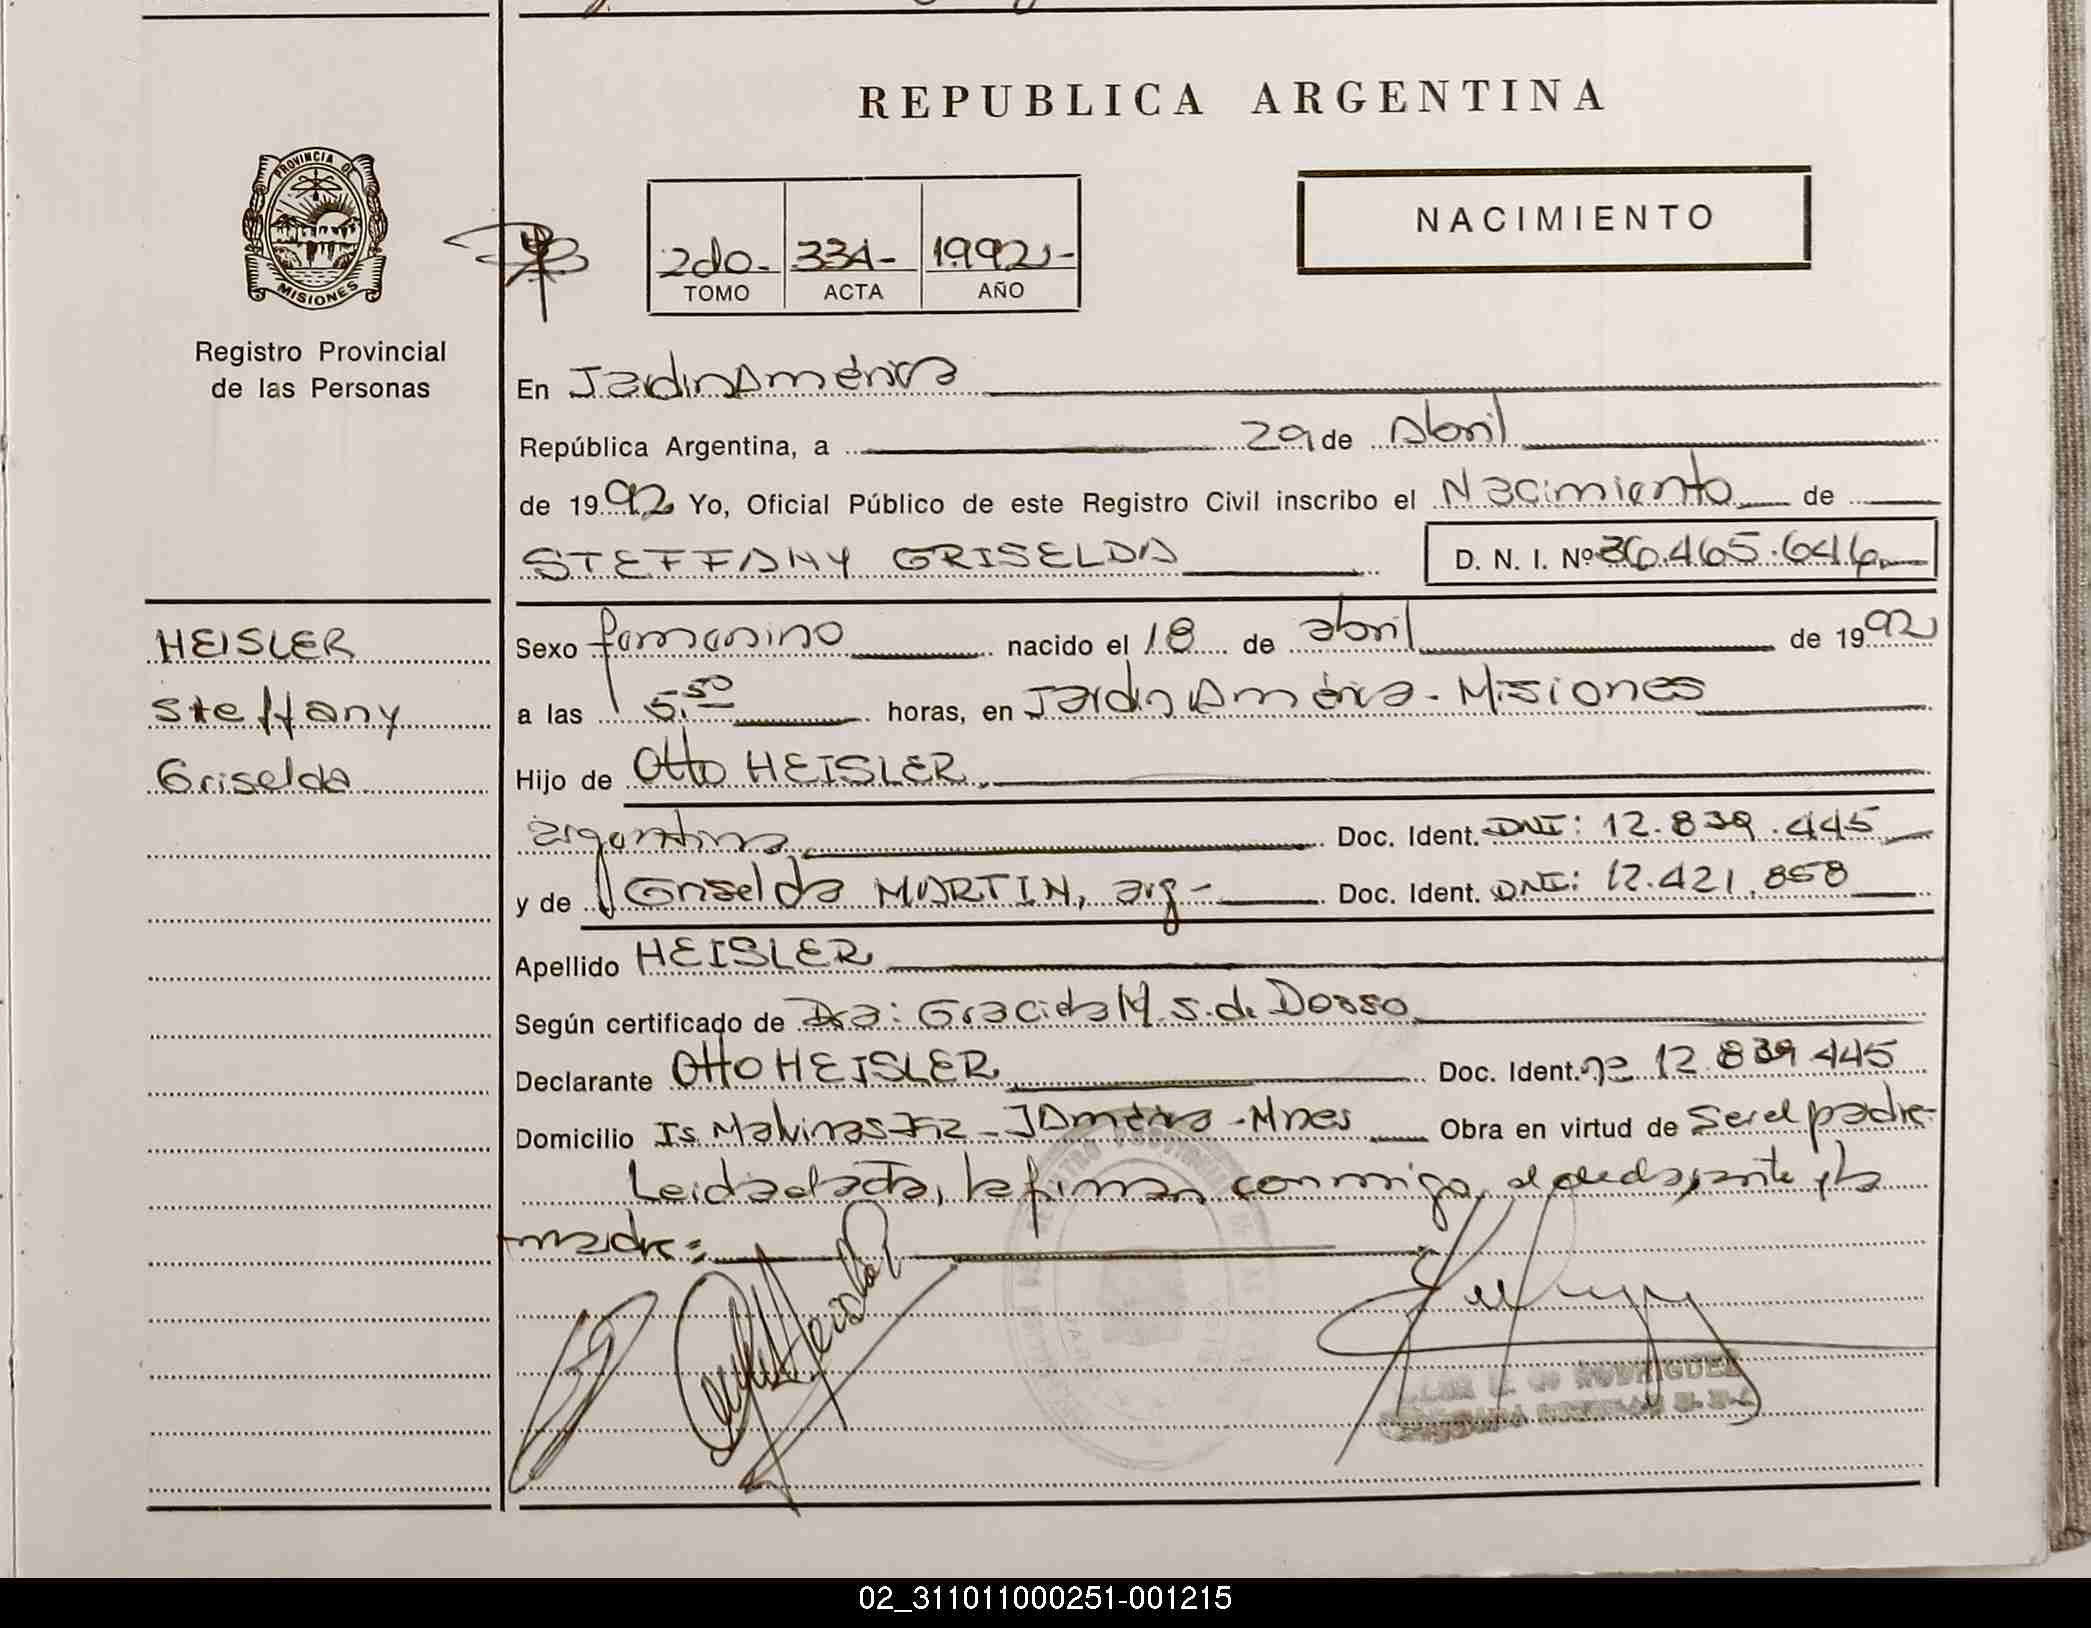 REPUBLICA ARGENTINA
PROVINCIA DE
MISIONES
Registro Provincial
de las Personas
NACIMIENTO
2do- 334- 1992-
TOMO ACTA AÑO
En Jardin América
República Argentina, a 29 de Abril
de 1992 Yo, Oficial Público de este Registro Civil inscribo el Nacimiento de
STEFFANY GRISELDA D. N. I. Nº 36.465.646
HEISLER
Steffany
Griselda
Sexo femenino nacido el 18 de abril de 1992
a las 5,50 horas, en Jardin América - Misiones
Hijo de Otto HEISLER,
argentino, Doc. Ident. DNI: 12.839.445
y de Griselda MARTIN, arg- Doc. Ident. DNI: 12.421.858
Apellido HEISLER
Según certificado de Dra: Graciela M. S. de Dosso
Declarante Otto HEISLER Doc. Ident. nº 12.839.445
Domicilio Is Malvinas - J América - Mnes Obra en virtud de ser el padre-
Leida el acta, la firman conmigo, el declarante y la
madre:
RODRIGUEZ
02_311011000251-001215